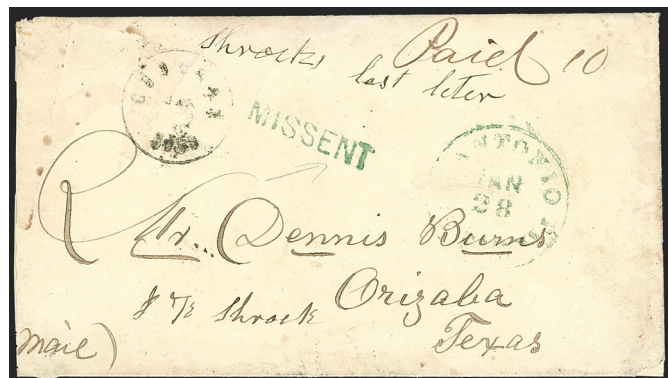 Shrocks
last leter
Paid 10
MISSENT
ANTONIO
JAN
28
Mr. Dennis Burns
Orizaba
Texas
Shrock